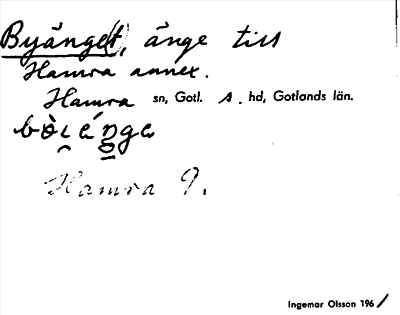 Byänge(t), änge till
Hamra annex.
Hamra sn, Gotl. s. hd, Gotlands län.
Hamra 9.
Ingemar Olsson 196/